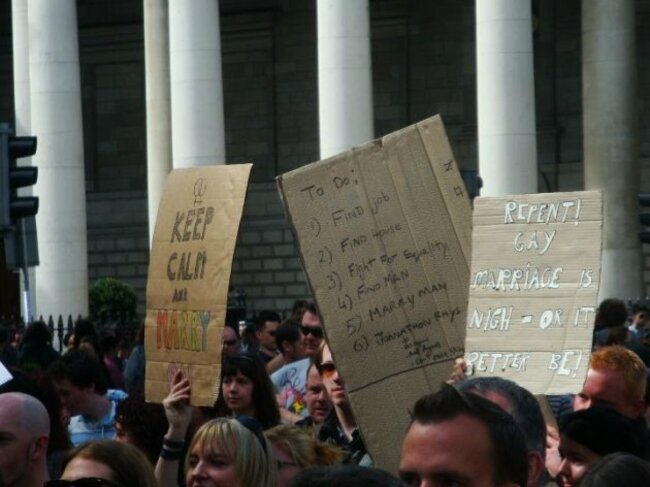 KEEP
CALM
AND
MARRY
To Do:
1) FIND job
2) FIND House
3) Fight For Equality
4) FIND MAN
5) MARRY MAN
6)
REPENT!
GAY
MARRIAGE IS
NIGH - OR IT
BETTER BE!